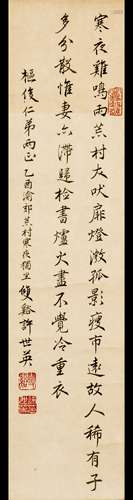 寒夜雞鳴雨荒村犬吠扉燈激孤影寢市遠故人稀有子
多分散惟妻亦滯歸檢書爐火盡不覺冷重衣
樞俊仁弟兩正 乙酉渝郊荒村寒夜獨坐 雙谿許世英